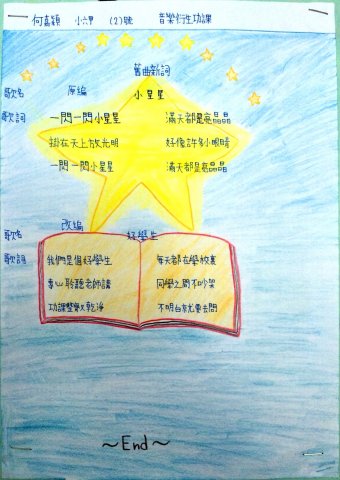 何嘉穎 小六甲 (2)號 音樂衍生功課
舊曲新詞
歌名 原編 小星星
歌詞 一閃一閃小星星 滿天都是亮晶晶
掛在天上放光明 好像許多小眼睛
一閃一閃小星星 滿天都是亮晶晶
改編
歌名 好學生
歌詞 我們是個好學生 每天都在學校裏
專心聆聽老師講 同學之間不吵架
功課整齊又乾淨 不明白就要去問
～End～